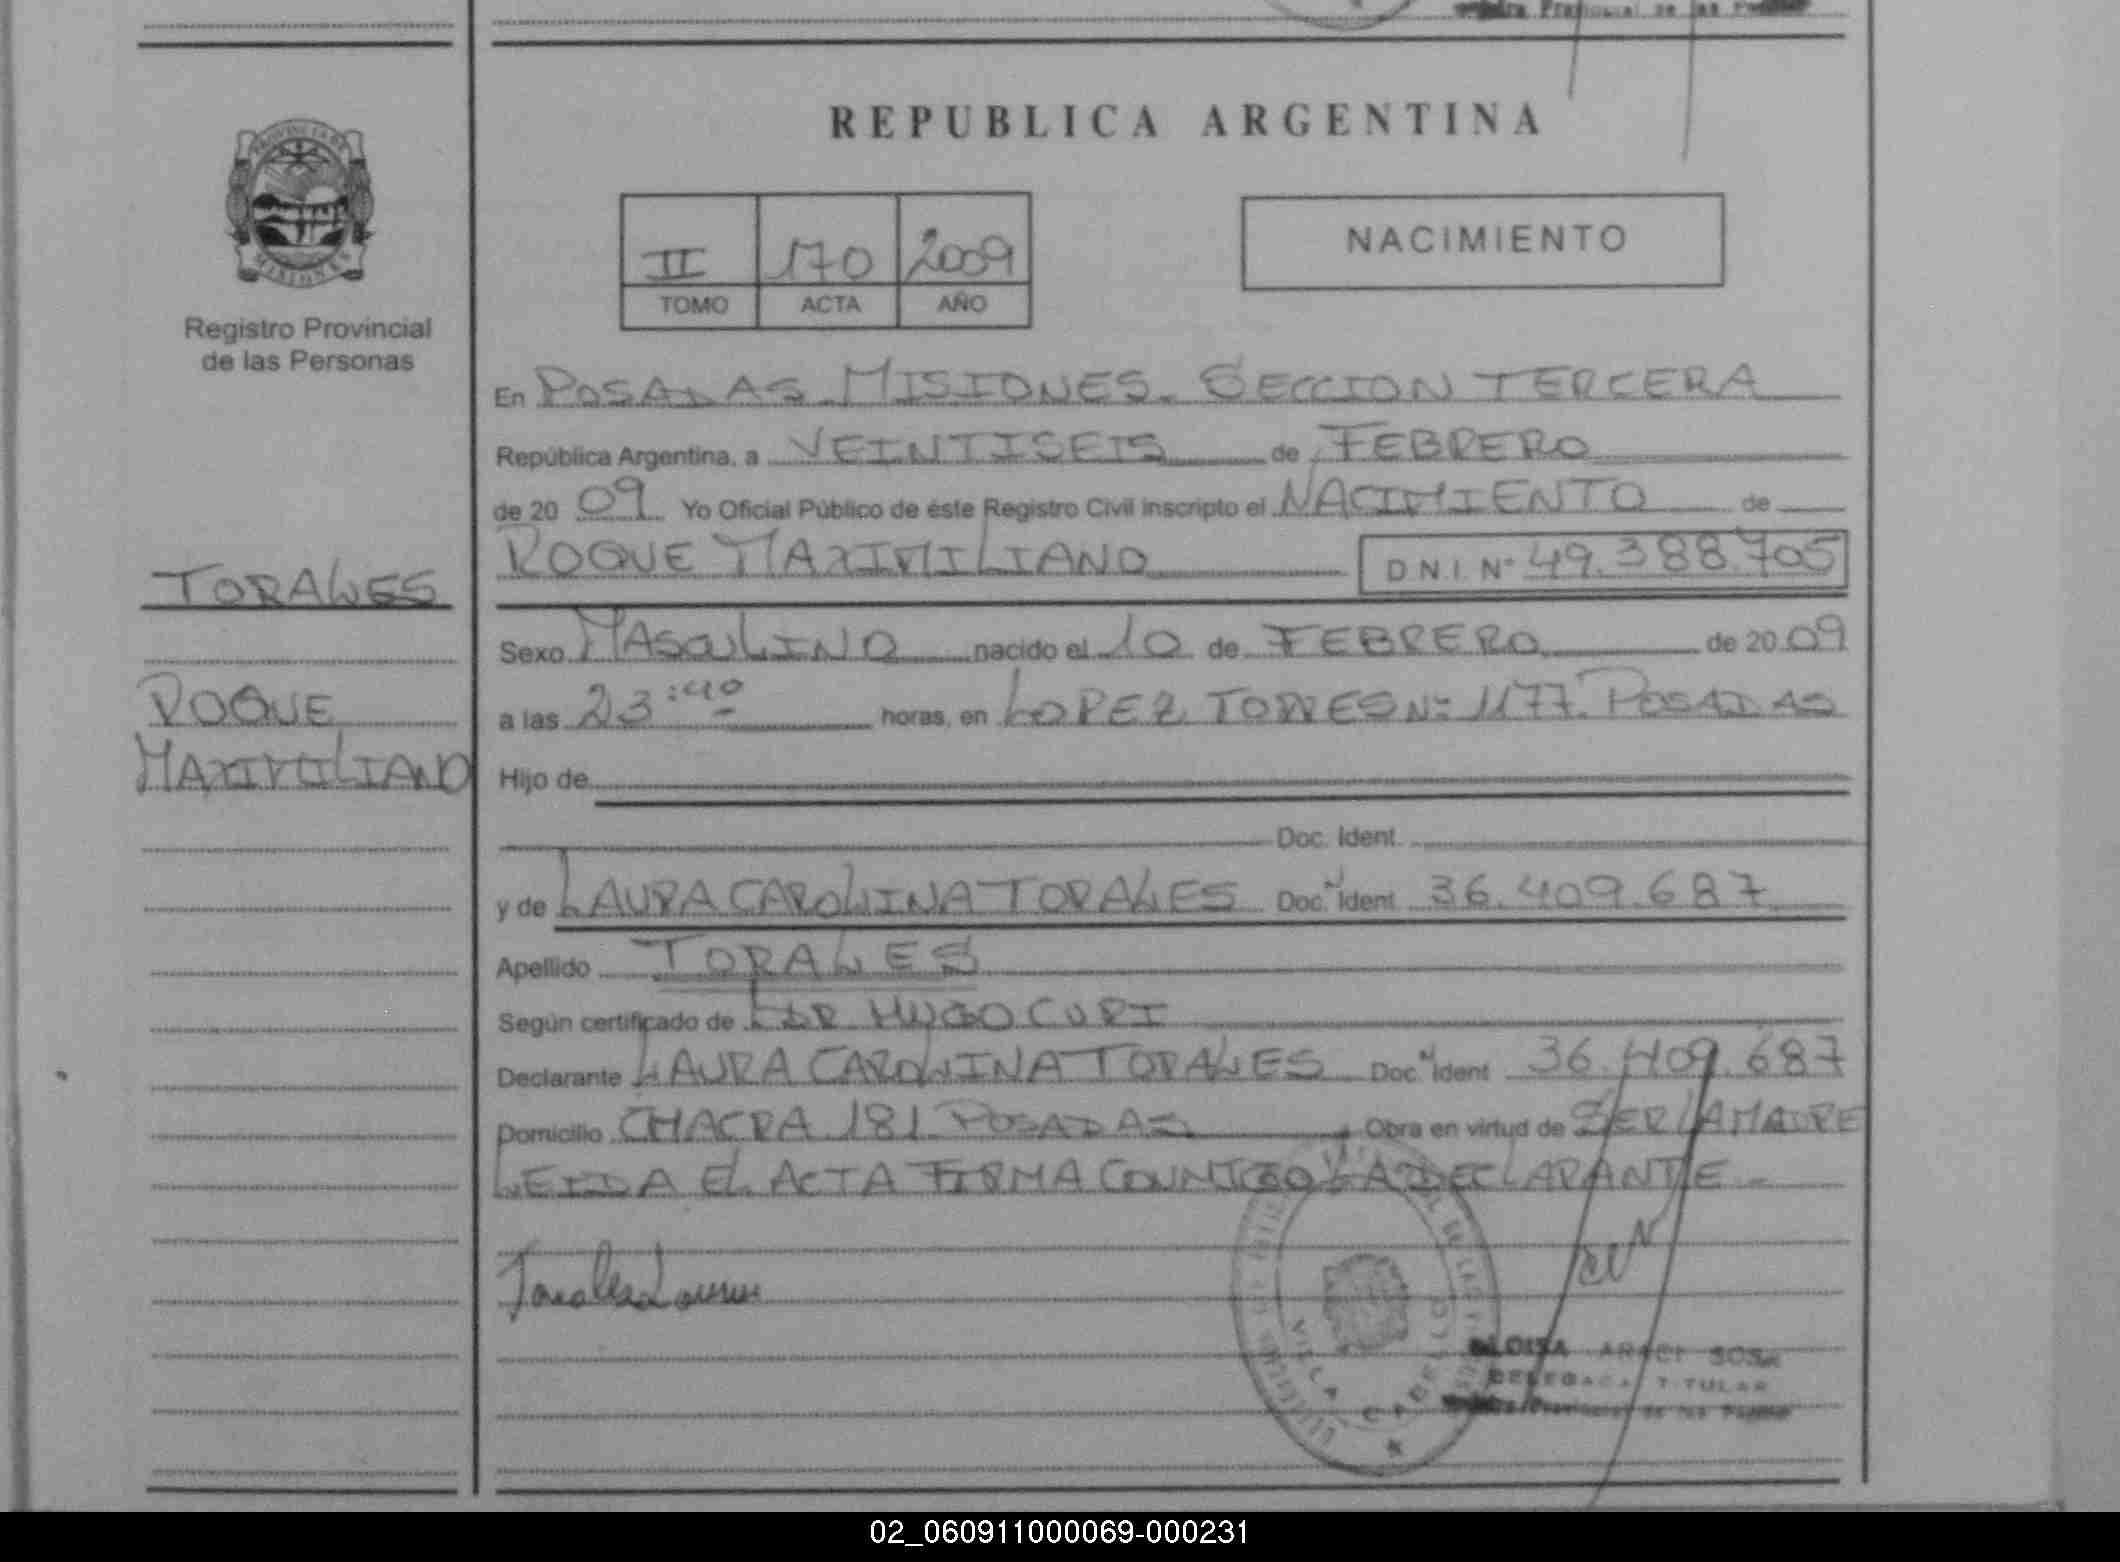 REPUBLICA ARGENTINA
PROVINCIA DE
MISIONES
Registro Provincial
de las Personas
II 170 2009
TOMO ACTA AÑO
NACIMIENTO
En POSADAS MISIONES. SECCION TERCERA
República Argentina, a VEINTISEIS de FEBRERO
de 20 09 Yo Oficial Público de éste Registro Civil inscripto el NACIMIENTO de
ROQUE MAXIMILIANO D.N.I. Nº 49.388.705
TORALES
Sexo MASCULINO nacido el 10 de FEBRERO de 20 09
ROQUE
MAXIMILIANO
a las 23:40 horas, en LOPEZ TORRES Nº 1177. POSADAS
Hijo de
Doc. Ident.
y de LAURA CAROLINA TORALES Doc. Ident 36.409.687
Apellido TORALES
Según certificado de HUGO CURI
Declarante LAURA CAROLINA TORALES Doc. Ident 36.409.687
Domicilio CHACRA 181 POSADAS Obra en virtud de SER LA MADRE
LEIDA EL ACTA FIRMA CONMIGO LA DECLARANTE
Torales Laura
VILLA CABELLO
ELOISA ARACI SOSA
DELEGADA TITULAR
Provincial de las
02_060911000069-000231